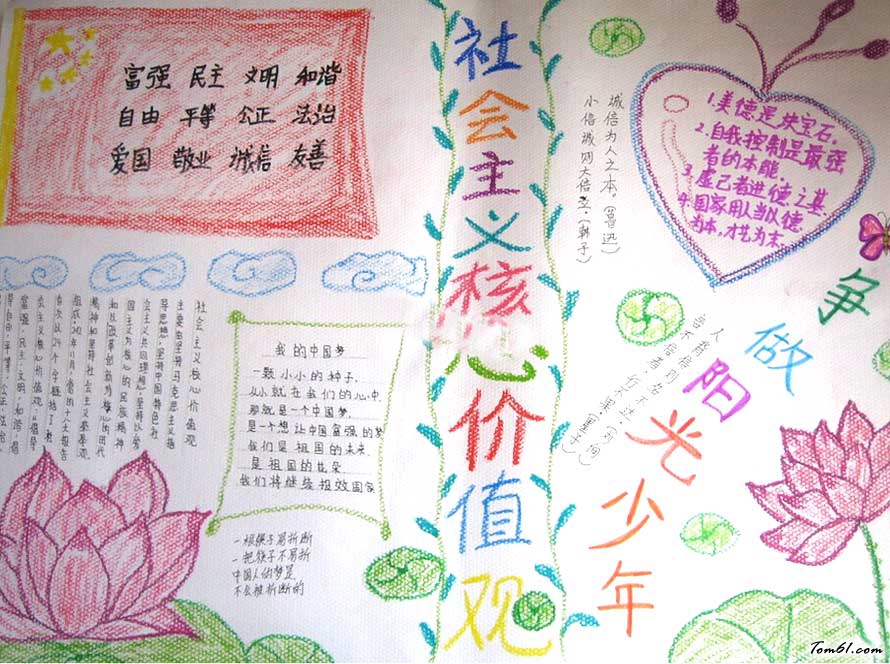 富强 民主 文明 和谐
自由 平等 公正 法治
爱国 敬业 诚信 友善
社会主义核心价值观
诚信为人之本。(鲁迅)
小信诚则大信立。(韩子)
1.美德是块宝石。
2.自我控制是最强
者的本能。
3.虚己者进德之基.
4.国家用人当以德
为本,才艺为末.
争做阳光少年
社会主义核心价值观
主要由坚持马克思主义指
导思想、坚持中国特色社
会主义共同理想、坚持以爱
国主义为核心的民族精神
和以改革创新为核心的时代
精神和坚持社会主义荣辱观
组成.2012年11月,党的十八大报告
首次以24个字概括了社
会主义核心价值观:"倡导
富强、民主、文明、和谐,倡
导自由、平等、公正、法治
我的中国梦
一颗小小的种子,
从小就在我们的心中.
那就是一个中国梦,
是一个想让中国富强的梦
我们是祖国的未来.
是祖国的花朵
我们将继续报效国家
一根筷子易折断
一把筷子不易折
中国人的梦是
不会被折断的
Tom61.com